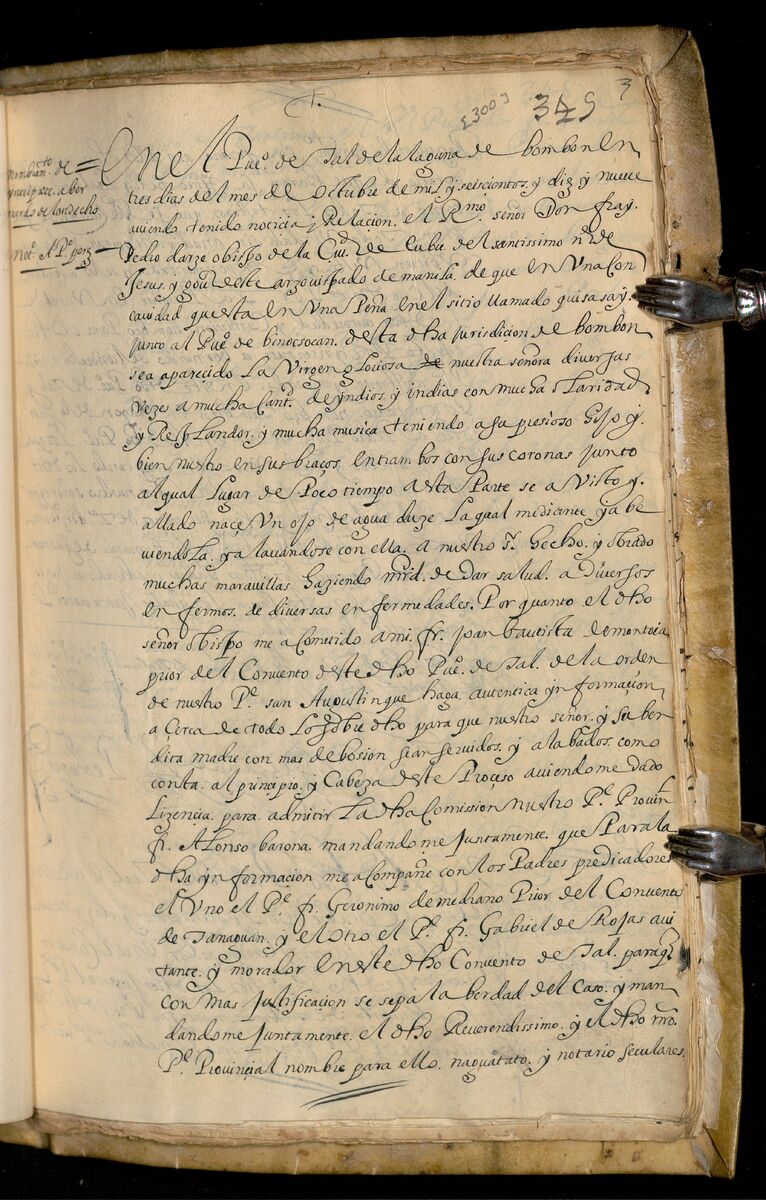 +.
[3003]
349
3
Nombram.to de
ynterprete. a ber
nardo de landecho
not.o A P.o
En el Pue.o de Tal de la laguna de bombon En
tres dias del mes de Octubre de mil y seiscientos. y diez y nueve
aviendo. tenido noticia y Relacion. el R.mo señor Don fray.
Pedro darze obispo de la Ciu.d de Cubu. del santissimo n.e de
Jesus. y gou.or deste arzouispado de manila. de que en Una Con
cauidad questa en Una Peña en el sitio llamado quisasay.
junto al Pue.o de binocsocan. desta dha jurisdicion. de bombon
sea aparecido La Virgen gloriosa de nuestra señora diversas
vezes a mucha Cant.d de yndios. y indias con mucha claridad
y Resplandor. y mucha musica teniendo a su presioso Hijo y.
bien nuestro en sus braços entrambos con sus coronas junto
al qual Lugar de Poco tiempo a esta Parte se a visto y.
allado naçe Un ojo de agua duze La qual mediante ya be
viendola. ya lavandose con ella. a nuestro s.r hecho. y obrado
muchas maravillas haziendo mrd. de dar salud. a Diversos
enfermos. de diversas enfermedades. Por quanto el dho
señor obispo me a cometido a mi. fr. joan bautista de montoia
prior del Convento deste dho Pue.o de Tal. de la orden
de nuestro P.e san Augustin que haga. autentica ynformaçion
a çerca de todo Lo sobre dho para que nuestro señor. y su ben
dita madre con mas debosion sean servidos. y alabados. como
consta. al prinçipio. y Cabeza deste Proçeso aviendome dado
Lizençia. para. admitir La dha Comission nuestro P.e Provin.l
fr. Alonso barona. mandandome juntamente. que Para la
dha ynformacion me acompañe con los Padres predicadores
el Uno el P.e fr. Geronimo de mediano Prior del Convento
de Tanaguan. y el otro el P.e fr. Gabriel de Rojas avi
tante. y morador en este dho Convento de Tal. para q.
con mas justificacion se sepa la berdad del caso. y man
dandome juntamente. el dho Reverendissimo. y el dho nro.
P.e Provinçial nombre para ello. naguatato. y notario seculares.